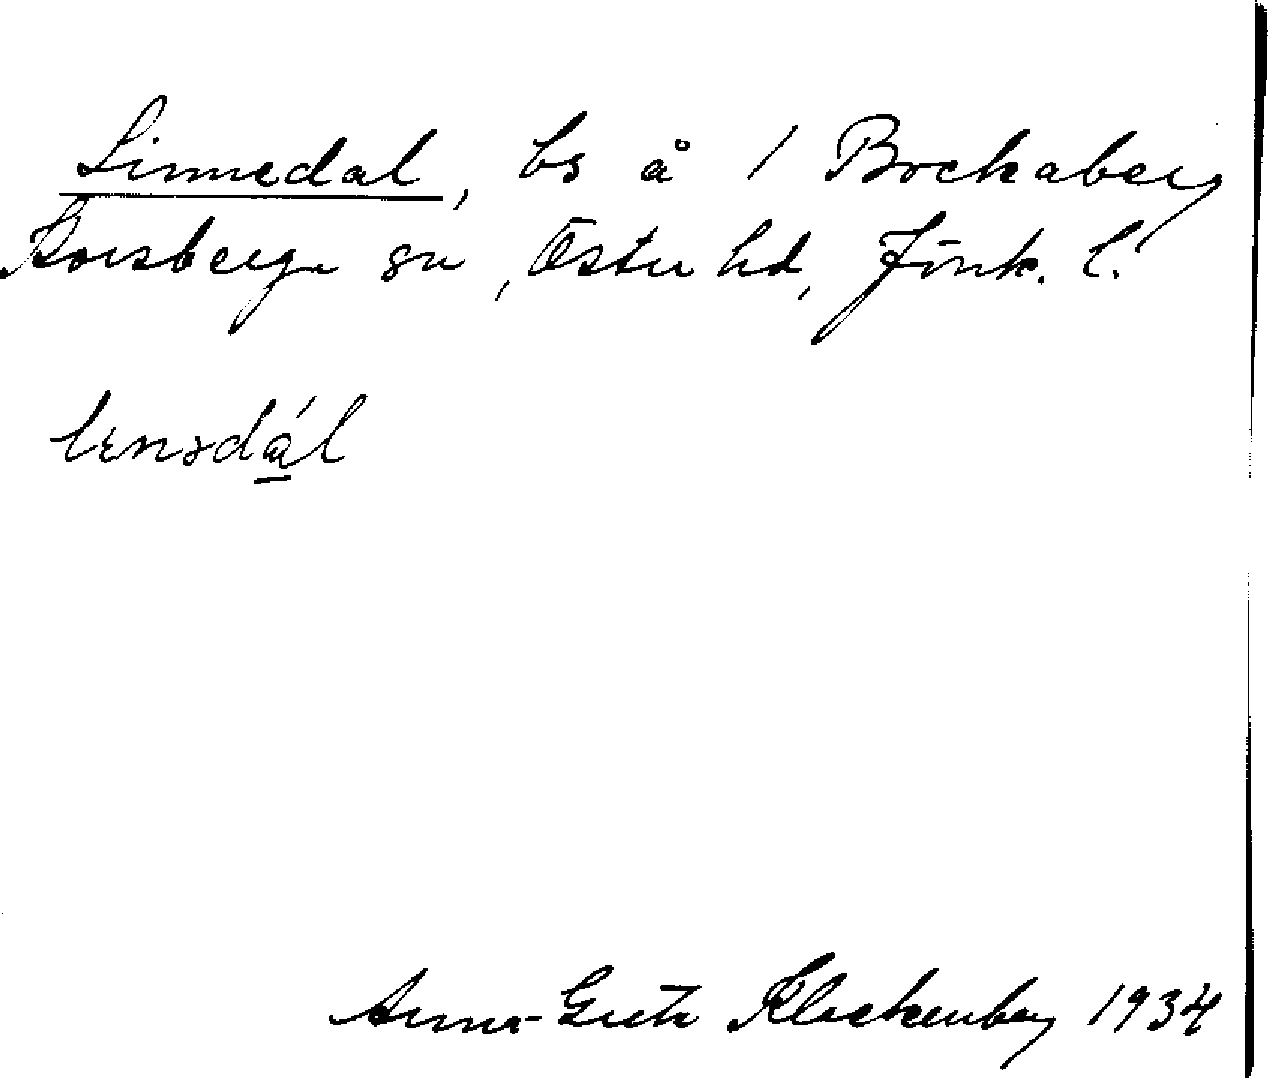 Linnedal, bs å 1 Bockaberg
Korsberga sn, Östra hd, Jönk. l.
lenədál
Anna-Greta Klockenberg 1934